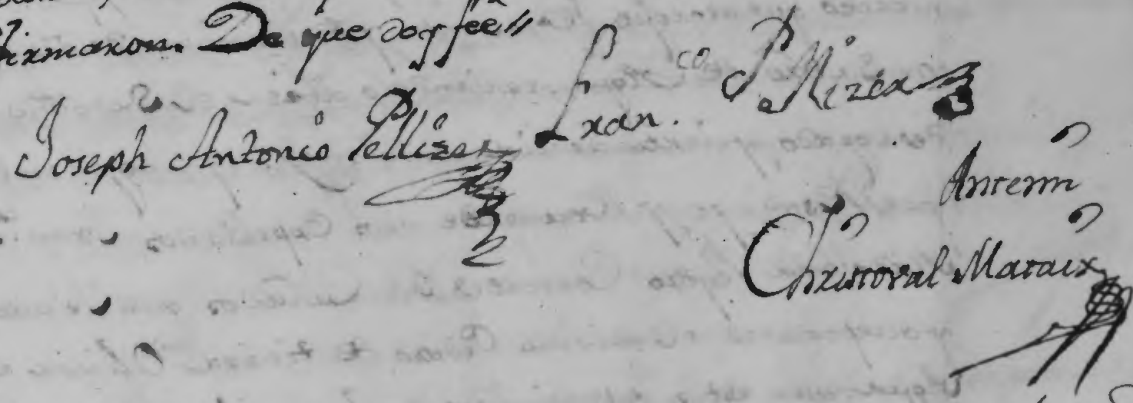 firmaron. De que doy feê//
Joseph Antonio Pellizer
Fran.co Pellizer
Ante mi
Christoval Mataix